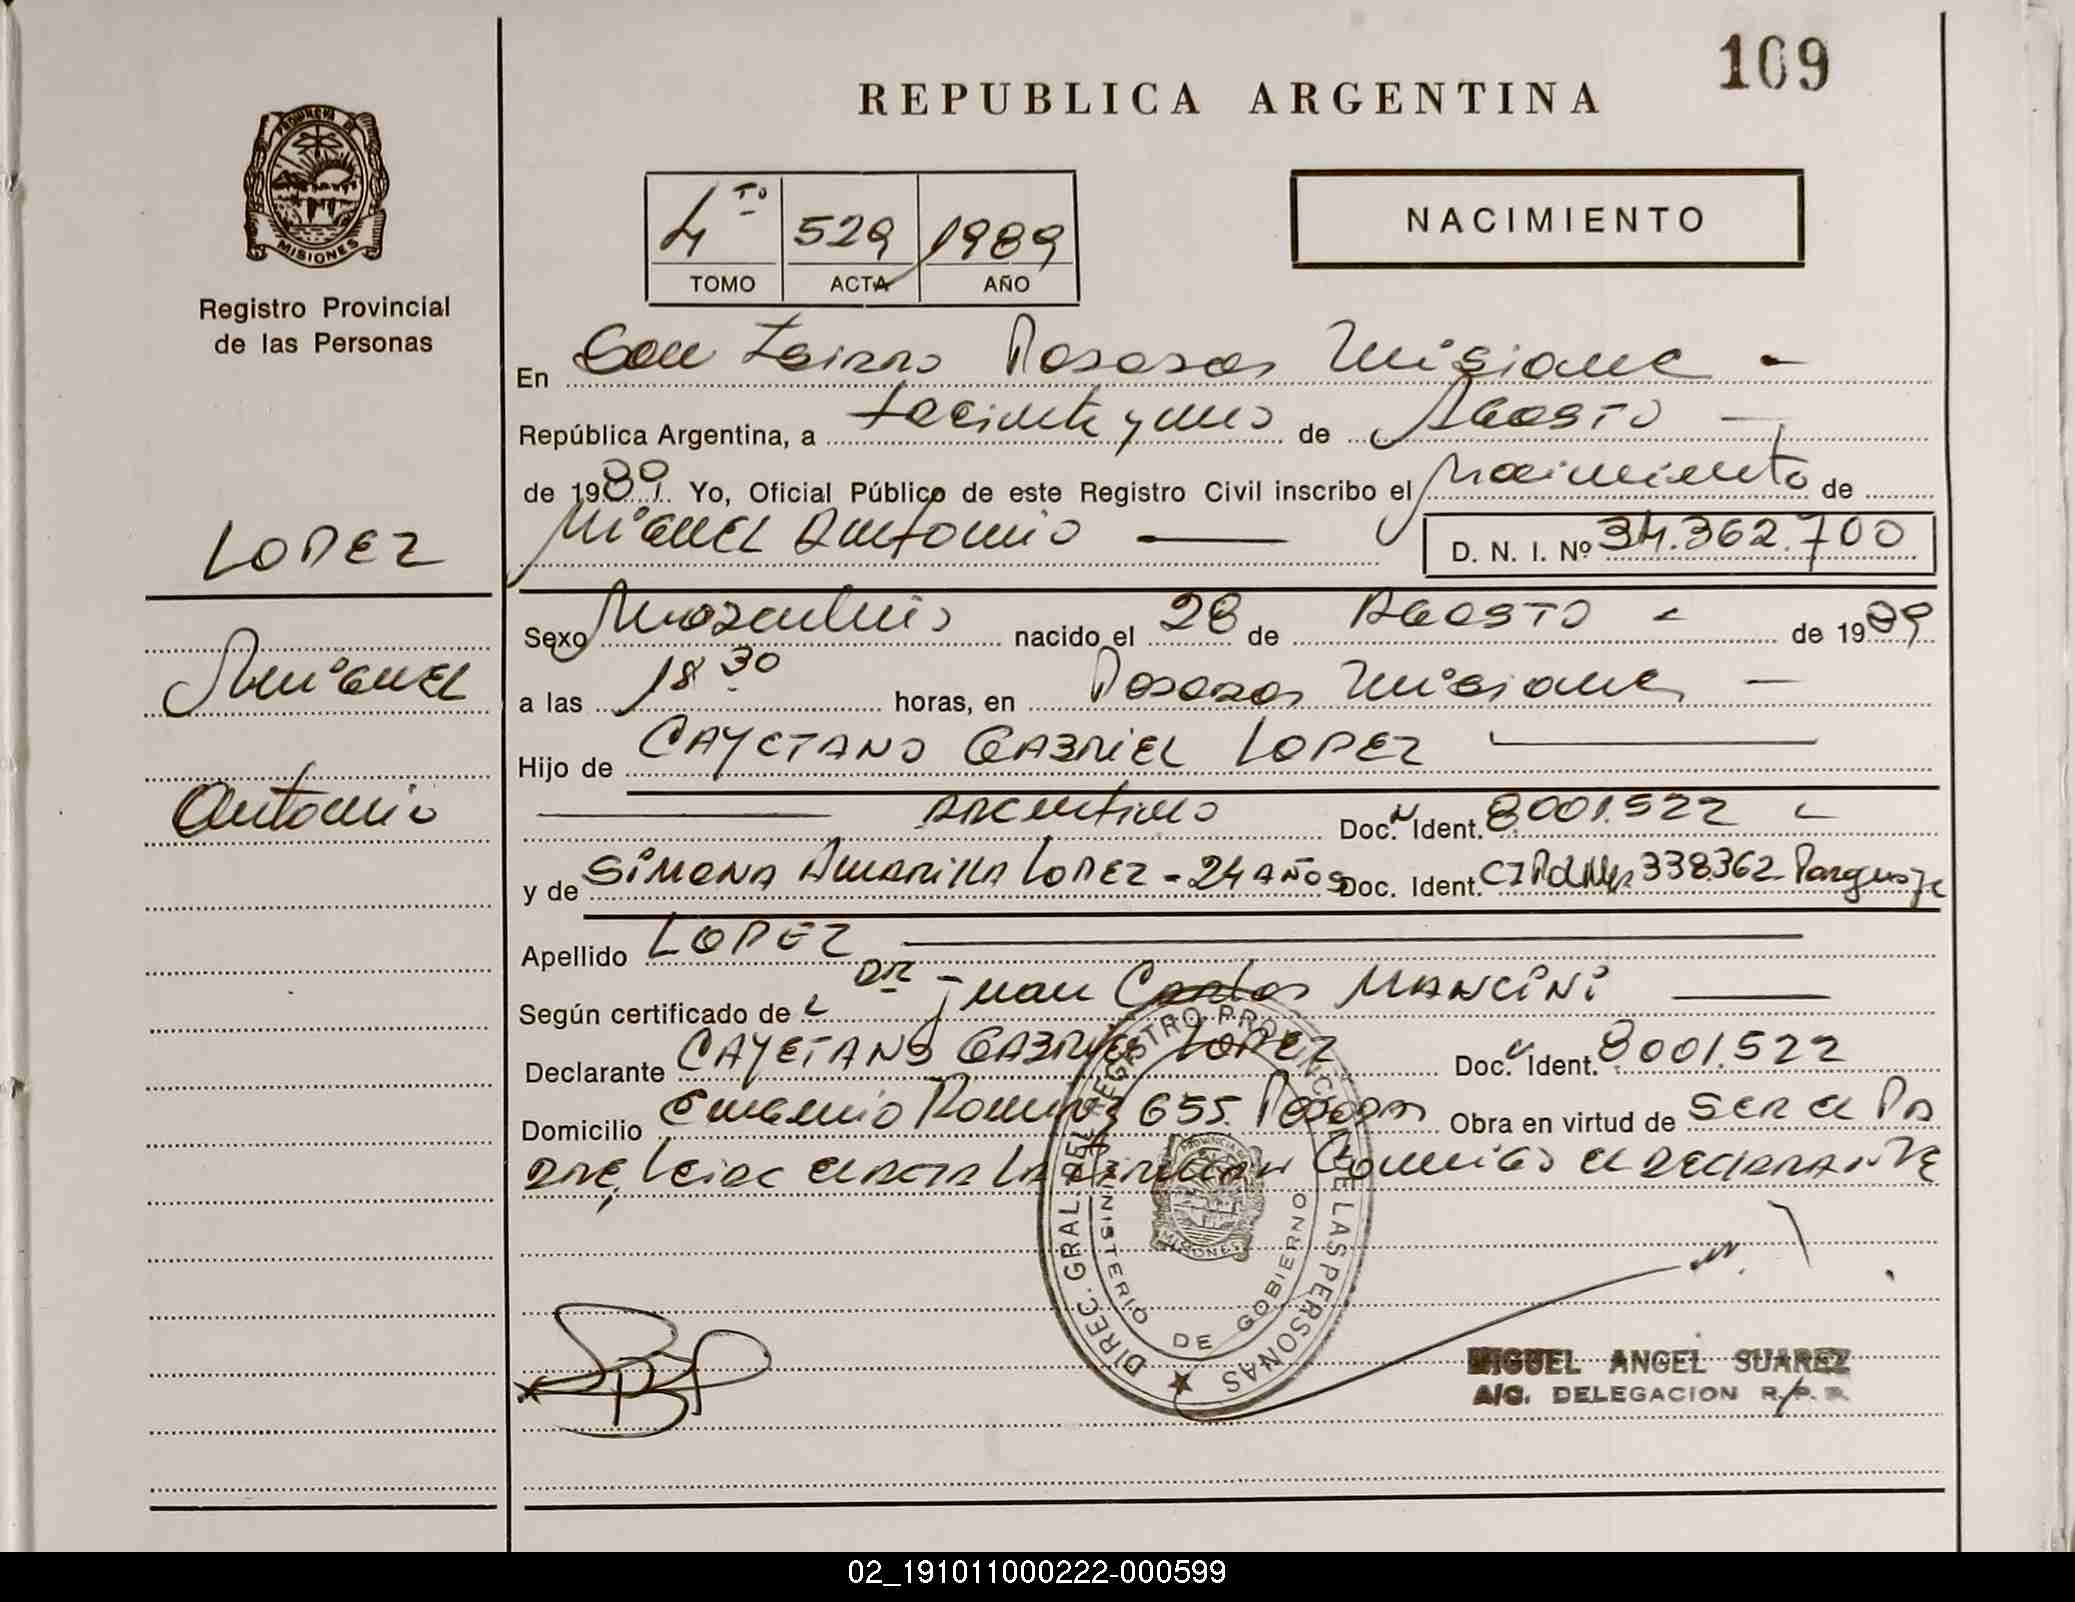 109
REPUBLICA ARGENTINA
PROVINCIA DE
MISIONES
Registro Provincial
de las Personas
4to 529 1989
TOMO ACTA AÑO
NACIMIENTO
En San Isidro Posadas Misiones
República Argentina, a treinta y uno de Agosto
de 1989. Yo, Oficial Público de este Registro Civil inscribo el Nacimiento de
Miguel Antonio D. N. I. Nº 34.362.700
LOPEZ
Miguel
Antonio
Sexo Masculino nacido el 28 de AGOSTO de 1989
a las 18 30 horas, en Posadas Misiones
Hijo de CAYETANO GABRIEL LOPEZ
Argentino Doc. Ident. 8.001.522
y de SIMONA AMARILLA LOPEZ - 24 AÑOS Doc. Ident. 338.362 Paraguaya
Apellido LOPEZ
Según certificado de Dr Juan Carlos MANCINI
Declarante CAYETANO GABRIEL LOPEZ Doc. Ident. 8001.522
Domicilio Eugenio Ramirez 655. Posadas Obra en virtud de SER el PA
DRE, Leida el ACTA LA FIRMAN Conmigo el DECLARANTE
DIREC. GRAL. DEL REGISTRO PROVINCIAL DE LAS PERSONAS
MINISTERIO DE GOBIERNO
PROVINCIA DE
MISIONES
MIGUEL ANGEL SUAREZ
A/C. DELEGACION R. P. P.
02_191011000222-000599